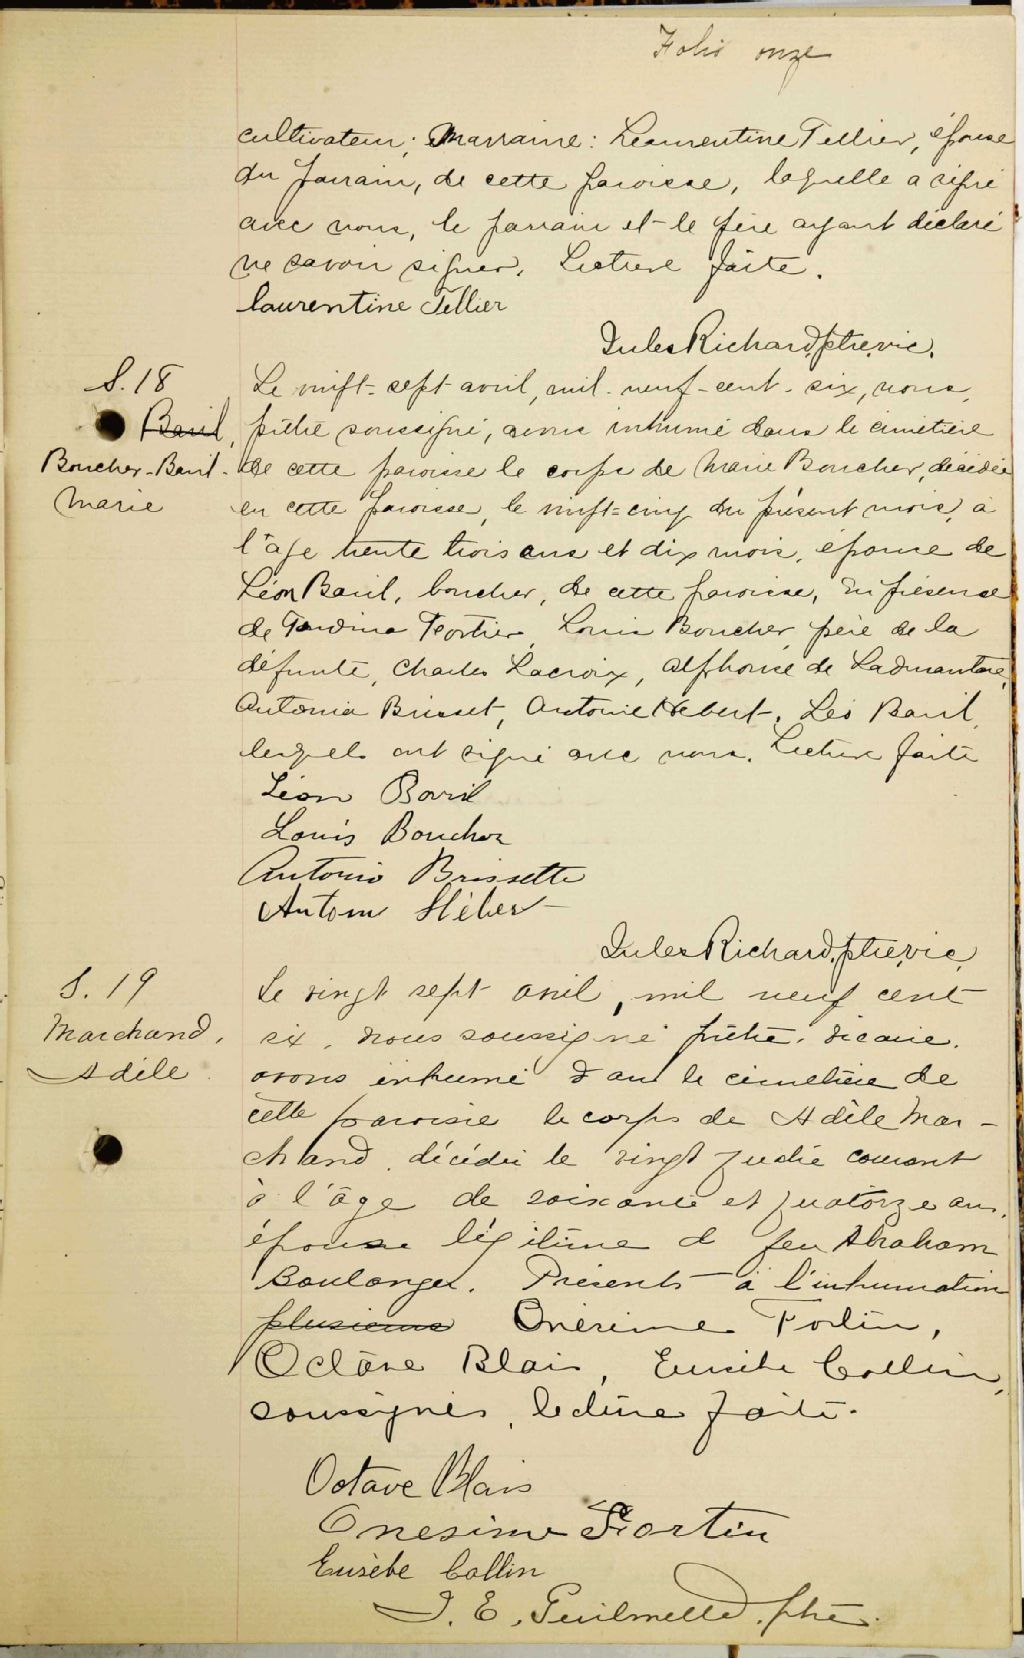 Folio onze
cultivateur; Marraine: Laurentine Tellier, épouse
du parrain, de cette paroisse, laquelle a signé
avec nous, le parrain et le père ayant déclaré
ne savoir signer. Lecture faite.
Laurentine Tellier
Jules Richard, ptre, vic.
S. 18
Baril,
Boucher-Baril-
Marie
Le vingt-sept avril, mil-neuf-cent-six, nous,
prêtre soussigné, avons inhumé dans le cimetière
de cette paroisse le corps de Marie Boucher, décédée
en cette paroisse, le vingt=cinq du présent mois, à
l'âge trente trois ans et dix mois, épouse de
Léon Baril, boucher, de cette paroisse, En présence
de Fortier, Louis Boucher, père de la
défunte, Charles Lacroix, Alphonse de Ladurantaye,
Antonia Brisset, Antoine Hebert, Léo Baril,
lesquels ont signé avec nous. Lecture faite
Léon Baril
Louis Boucher
Antonio Brissette
Antoni Héber
Jules Richard, ptre, vic.
S. 19
Marchand,
Adèle
Le vingt sept avril, mil neuf cent
six, nous soussigné prêtre, vicaire,
avons inhumé dans le cimetière de
cette paroisse le corps de Adèle Mar-
chand, décédée le vingt courant
à l'âge de soixante et quatorze ans,
épouse légitime d feu Abraham
Boulanger. Présents à l'inhumation
plusieurs Onésime Fortin,
Octave Blais, Eusèbe Collin,
soussignés, lecture faite.
Octave Blais
Onesime Fortin
Eusèbe Collin
J. E. Guilmette, ptre.